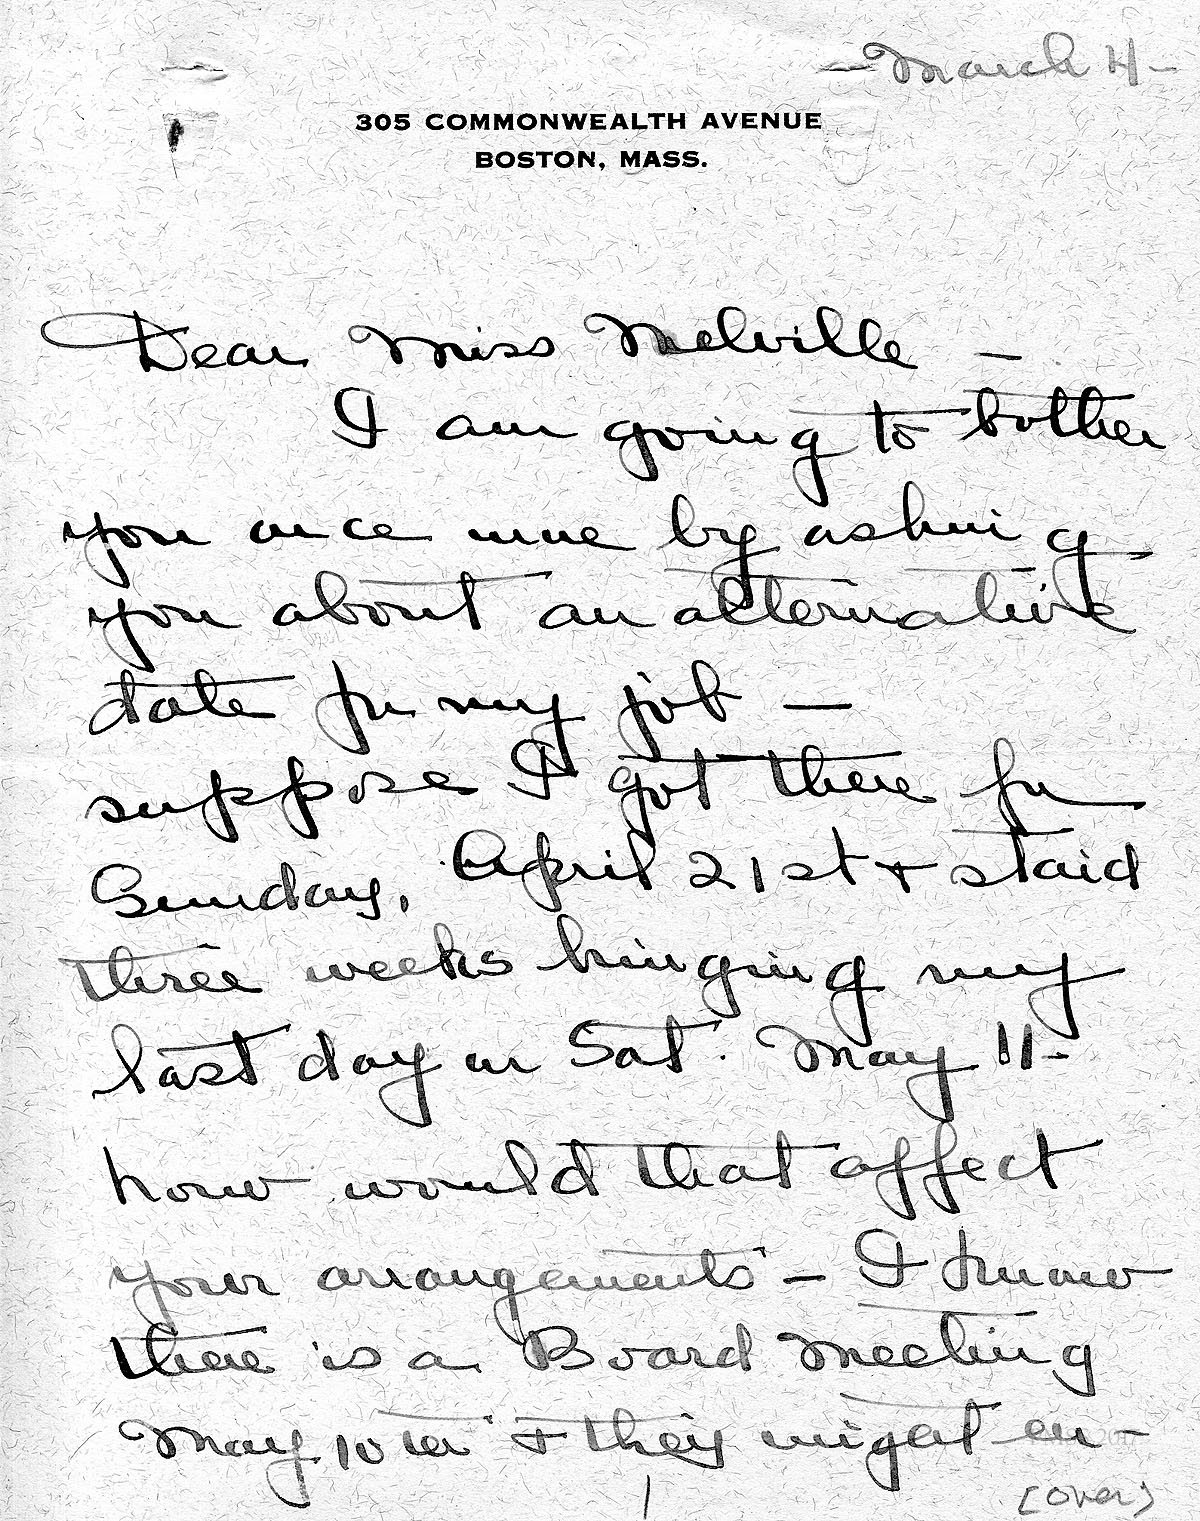 March 4-
305 COMMONWEALTH AVENUE
BOSTON, MASS.
Dear Miss Melville —
I am going to bother
you once more by asking
you about an alternative
date for my job —
suppose I got there for
Sunday, April 21st + staid
three weeks bringing my
last day on Sat. May 11-
how would that affect
your arrangements - I know
there is a Board Meeting
May 10th + they might en-
(over)